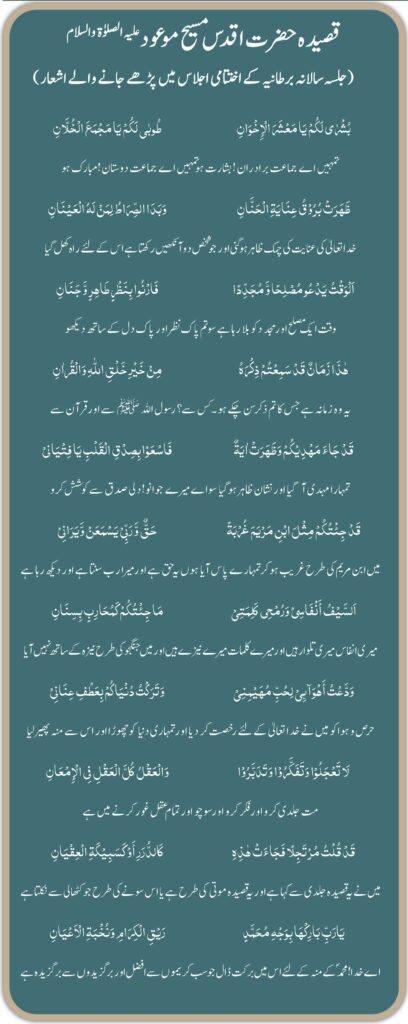 قصیدہ حضرت اقدس مسیح موعود علیہ الصلوٰۃ والسلام
(جلسہ سالانہ برطانیہ کے اختتامی اجلاس میں پڑھے جانے والے اشعار)
بُشْرٰی لَکُمْ یَا مَعْشَرَ الْاِخْوَانِ طُوبٰی لَکُمْ یَا مَجْمَعَ الْخُلَّانِ
تمہیں اے جماعت برادران! بشارت ہو تمہیں اے جماعت دوستان! مبارک ہو
ظَهَرَتْ بُرُوْقُ عِنَایَةِ الْحَنَّانِ وَبَدَا الصِّرَاطُ لِمَنْ لَهُ الْعَیْنَانِ
خدا تعالیٰ کی عنایت کی چمک ظاہر ہو گئی اور جو شخص دو آنکھیں رکھتا ہے اس کے لئے راہ کھل گیا
اَلْوَقْتُ یَدْعُو مُصْلِحًا وَّ مُجَدِّدًا فَارْنُوْا بِنَظْرٍ طَاهِرٍ وَّجَنَانِ
وقت ایک مصلح اور مجدد کو بلا رہا ہے سو تم پاک نظر اور پاک دل کے ساتھ دیکھو
هٰذَا زَمَانٌ قَدْ سَمِعْتُمْ ذِکْرَهٗ مِنْ خَیْرِ خَلْقِ اللّٰهِ وَالْقُرْاٰنِ
یہ وہ زمانہ ہے جس کا تم ذکر سن چکے ہو۔ کس سے؟ رسول اللہ ﷺ سے اور قرآن سے
قَدْ جَاءَ مَهْدِیُّکُمْ وَظَهَرَتْ اٰیَةٌ فَاسْعَوْا بِصِدْقِ الْقَلْبِ یَا فِتْیَانِیْ
تمہارا مہدی آ گیا اور نشان ظاہر ہو گیا سو اے میرے جوانو! دلی صدق سے کوشش کرو
قَدْ جِئْتُکُمْ مِثْلَ ابْنِ مَرْیَمَ غُرْبَةً حَقٌّ وَّرَبِّیْ یَسْمَعَنْ وَّیَرَانِیْ
میں ابن مریم کی طرح غریب ہو کر تمہارے پاس آیا ہوں یہ حق ہے اور میرا رب سنتا ہے اور دیکھ رہا ہے
اَلسَّیْفُ اَنْفَاسِیْ وَرُمْحِیْ کَلِمَتِیْ مَا جِئْتُکُمْ کَمُحَارِبٍ بِسِنَانِ
میری انفاس میری تلوار ہیں اور میرے کلمات میرے نیزے ہیں اور میں جنگجو کی طرح نیزہ کے ساتھ نہیں آیا
وَدَّعْتُ اَهْوَاٰیِیْ لِحُبِّ مُهَیْمِنِیْ وَتَرَکْتُ دُنْیَاکُمْ بِعَطْفِ عِنَانِیْ
حرص و ہوا کو میں نے خدا تعالیٰ کے لئے رخصت کر دیا اور تمہاری دنیا کو چھوڑا اور اس سے منہ پھیر لیا
لَا تَعْجَلُوْا وَتَفَکَّرُوْا وَتَدَبَّرُوْا وَالْعَقْلُ کُلُّ الْعَقْلِ فِی الْاِمْعَانِ
مت جلدی کرو اور فکر کرو اور سوچو اور تمام عقل غور کرنے میں ہے
قَدْ قُلْتُ مُرْتَجِلًا فَجَاءَتْ هٰذِهِ کَالدُّرَرِ اَوْ کَسَبِیْکَةِ الْعِقْیَانِ
میں نے یہ قصیدہ جلدی سے کہا ہے اور یہ قصیدہ موتی کی طرح ہے یا اس سونے کی طرح جو کٹھالی سے نکلتا ہے
یَا رَبِّ بَارِکْهَا بِوَجْهِ مُحَمَّدٍ رَیْقِ الْکِرَامِ وَنُخْبَةِ الْاَعْیَانِ
اے خدا! محمدؐ کے منہ کے لئے اس میں برکت ڈال جو سب کریموں سے افضل اور برگزیدوں سے برگزیدہ ہے